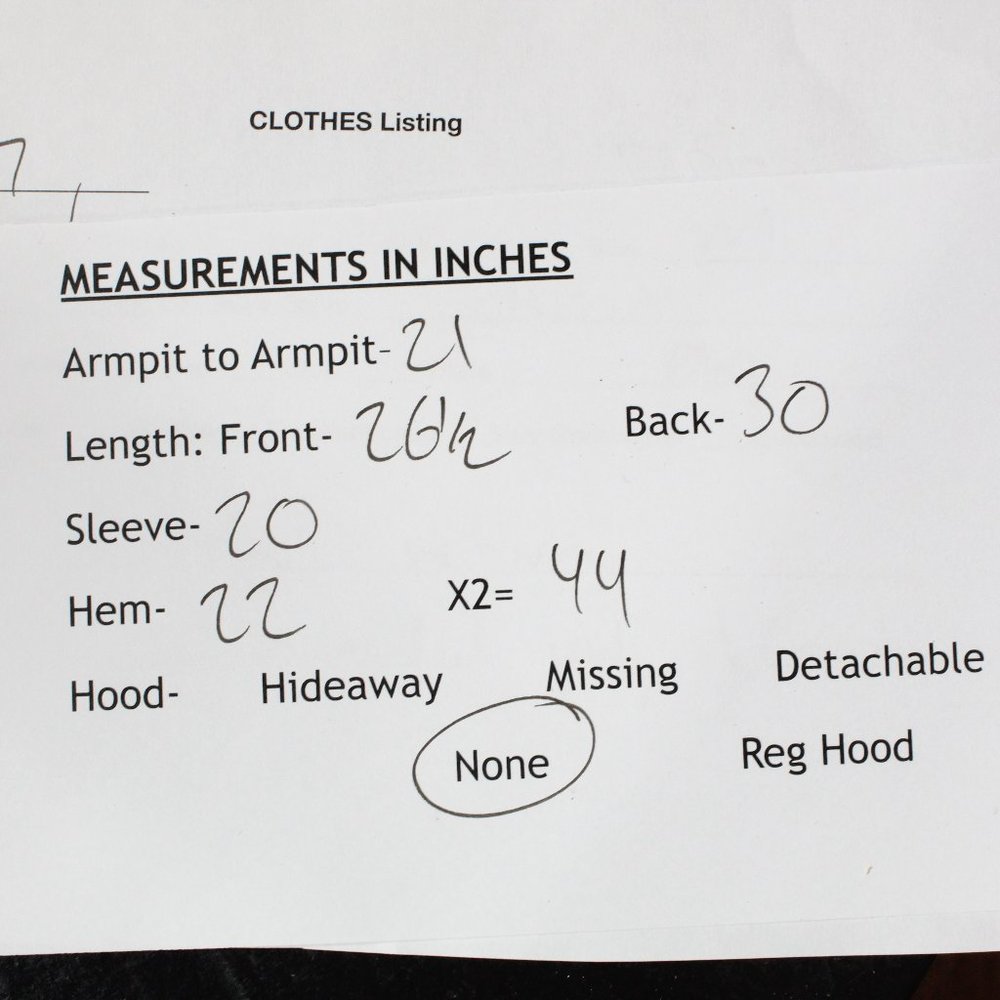 CLOTHES Listing
MEASUREMENTS IN INCHES
Armpit to Armpit- 21
Length: Front- 26 1/2 Back- 30
Sleeve- 20
Hem- 22 X2= 44
Hood- Hideaway Missing Detachable
None Reg Hood